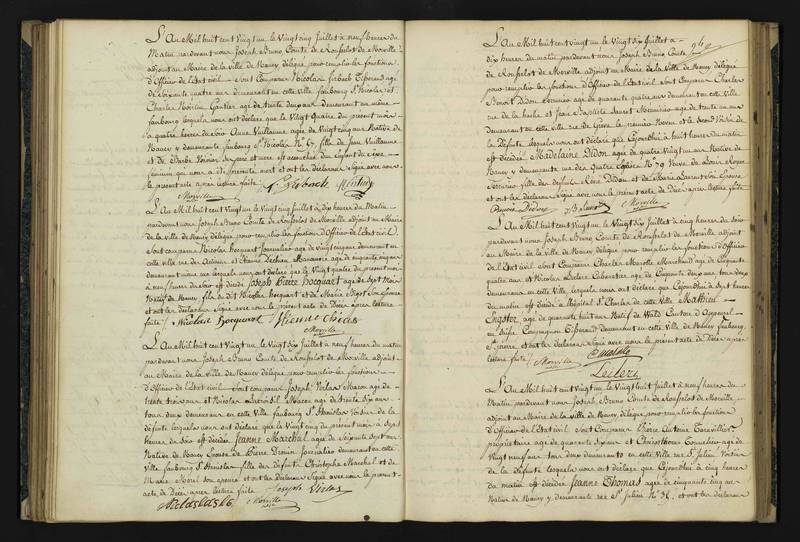 L'an Mil huit cent vingt un le vingt cinq Juillet à neuf heures du
Matin pardevant nous Joseph Bruno Comte de Rousselot de Morville
adjoint au Maire de la Ville de Nancy délégué pour remplir les fonctions
d'Officier de l'Etat civil — Sont Comparus Nicolas agé
de soixante quatre ans demeurant en cette ville faubourg St Nicolas et
Charles agé de trente deux ans demeurant au même
faubourg lesquels nous ont déclaré que le Vingt quatre du présent mois
à quatre heures du soir Anne Vuillaume agée de Vingt cinq ans Native de
Nancy y demeurante faubourg St Nicolas No 67, fille de Jean Vuillaume
et de Barbe ses père et mère est accouchée d'un Enfant du Sexe
féminin qui nous a été présenté mort et ont les déclarans Signé avec nous
le présent acte après lecture faite
Morville
L'An Mil huit cent Vingt un le Vingt cinq Juillet à dix heures du Matin
pardevant nous Joseph Bruno Comte de Rousselot de Morville adjoint au Maire
de la Ville de Nancy délégué pour remplir les fonctions d'Officier de l'Etat civil
Sont comparus Nicolas Hocquart Journalier agé de vingt ans demeurant en
cette ville rue des et Etienne agé de cinquante ans
demeurant même rue lesquels nous ont déclaré que le Vingt quatre du présent mois
à neuf heures du soir est décédé Joseph Pierre Hocquart agé de Sept Mois
Natif de Nancy fils de dit Nicolas Hocquart et de Marie son Epouse
et ont les déclarans signé avec nous le présent acte de Décès après lecture
faite / Nicolas hocquart Etienne
Morville
L'An Mil huit cent Vingt un le Vingt six Juillet à neuf heures du matin
pardevant nous Joseph Bruno Comte de Rousselot de Morville adjoint
au Maire de la Ville de Nancy délégué pour remplir les fonctions
d'Officier de l'Etat civil — Sont comparus Joseph Maçon agé de
trente trois ans et Nicolas Maçon agé de trente six ans
tous deux demeurans en cette Ville faubourg St Stanislas Voisins de la
défunte lesquels nous ont déclaré que le Vingt cinq du présent mois à Sept
heures du Soir est décédée Jeanne Marchal agée de soixante Sept ans
Native de Nancy Epouse de Pierre Journalier demeurant en cette
ville faubourg St Stanislas fille des défunts Christophe Marchal et de
Marie et ont les déclarans Signé avec nous le présent
acte de Décès après lecture faite Joseph
Morville
L'An Mil huit cent vingt un le Vingt Six Juillet à
dix heures du matin pardevant nous Joseph Bruno Comte
de Rousselot de Morville adjoint au Maire de la Ville de Nancy délégué
pour remplir les fonctions d'Officier de l'Etat civil Sont Comparus Charles
Benoit Didon agé de quarante quatre ans demeurant en cette Ville
rue de la hache et Jean Baptiste Menuisier agé de trente un ans
demeurant en cette ville rue de Grève le premier et le Second Voisin de
la Défunte lesquels nous ont déclaré que Cejourd'hui à huit heures du matin
est décédée Madelaine Didon agée de quatre Vingt ans Native de
Nancy y demeurante rue des quatre Eglises No 79 Veuve de Louis
fille des défunts Rémi Didon et de Marie Son Epouse
et ont les déclarans Signé avec nous le présent acte de Décès après lecture faite
Morville
L'An Mil huit cent Vingt un le Vingt Six Juillet à cinq heures du Soir
pardevant nous Joseph Bruno Comte de Rousselot de Morville adjoint
au Maire de la Ville de Nancy délégué pour remplir les fonctions d'Officier
de l'Etat civil Sont Comparus Charles Marotte Marchand agé de Cinquante
quatre ans et Nicolas Leclerc Cabaretier agé de Cinquante deux ans tous deux
demeurans en cette Ville, lesquels nous ont déclaré que Cejourd'hui à Sept heures
du matin est décédé à l'hôpital St Charles de cette Ville Mathieu
agé de quarante huit ans Natif de Canton d'Appenzel
en Suisse Compagnon demeurant en cette ville de Nancy faubourg
St pierre, et ont les déclarans Signé avec nous le présent acte de Décès après
lecture faite / Morville
Leclerc
L'An Mil huit cent Vingt un le Vingt huit Juillet à neuf heures du
Matin pardevant nous Joseph Bruno Comte de Rousselot de Morville
adjoint au Maire de la Ville de Nancy délégué pour remplir les fonctions
d'Officier de l'Etat civil Sont Comparus Pierre Antoine
propriétaire agé de quarante Six ans et Christophe Tonnelier agé de
Vingt neuf ans tous deux demeurans en cette Ville rue St Julien Voisins
de la Défunte lesquels nous ont déclaré que Cejourd'hui à cinq heures
du matin est décédée Jeanne Thomas agée de cinquante cinq ans
Native de Nancy y demeurante rue St Julien No 38, et ont les déclarans